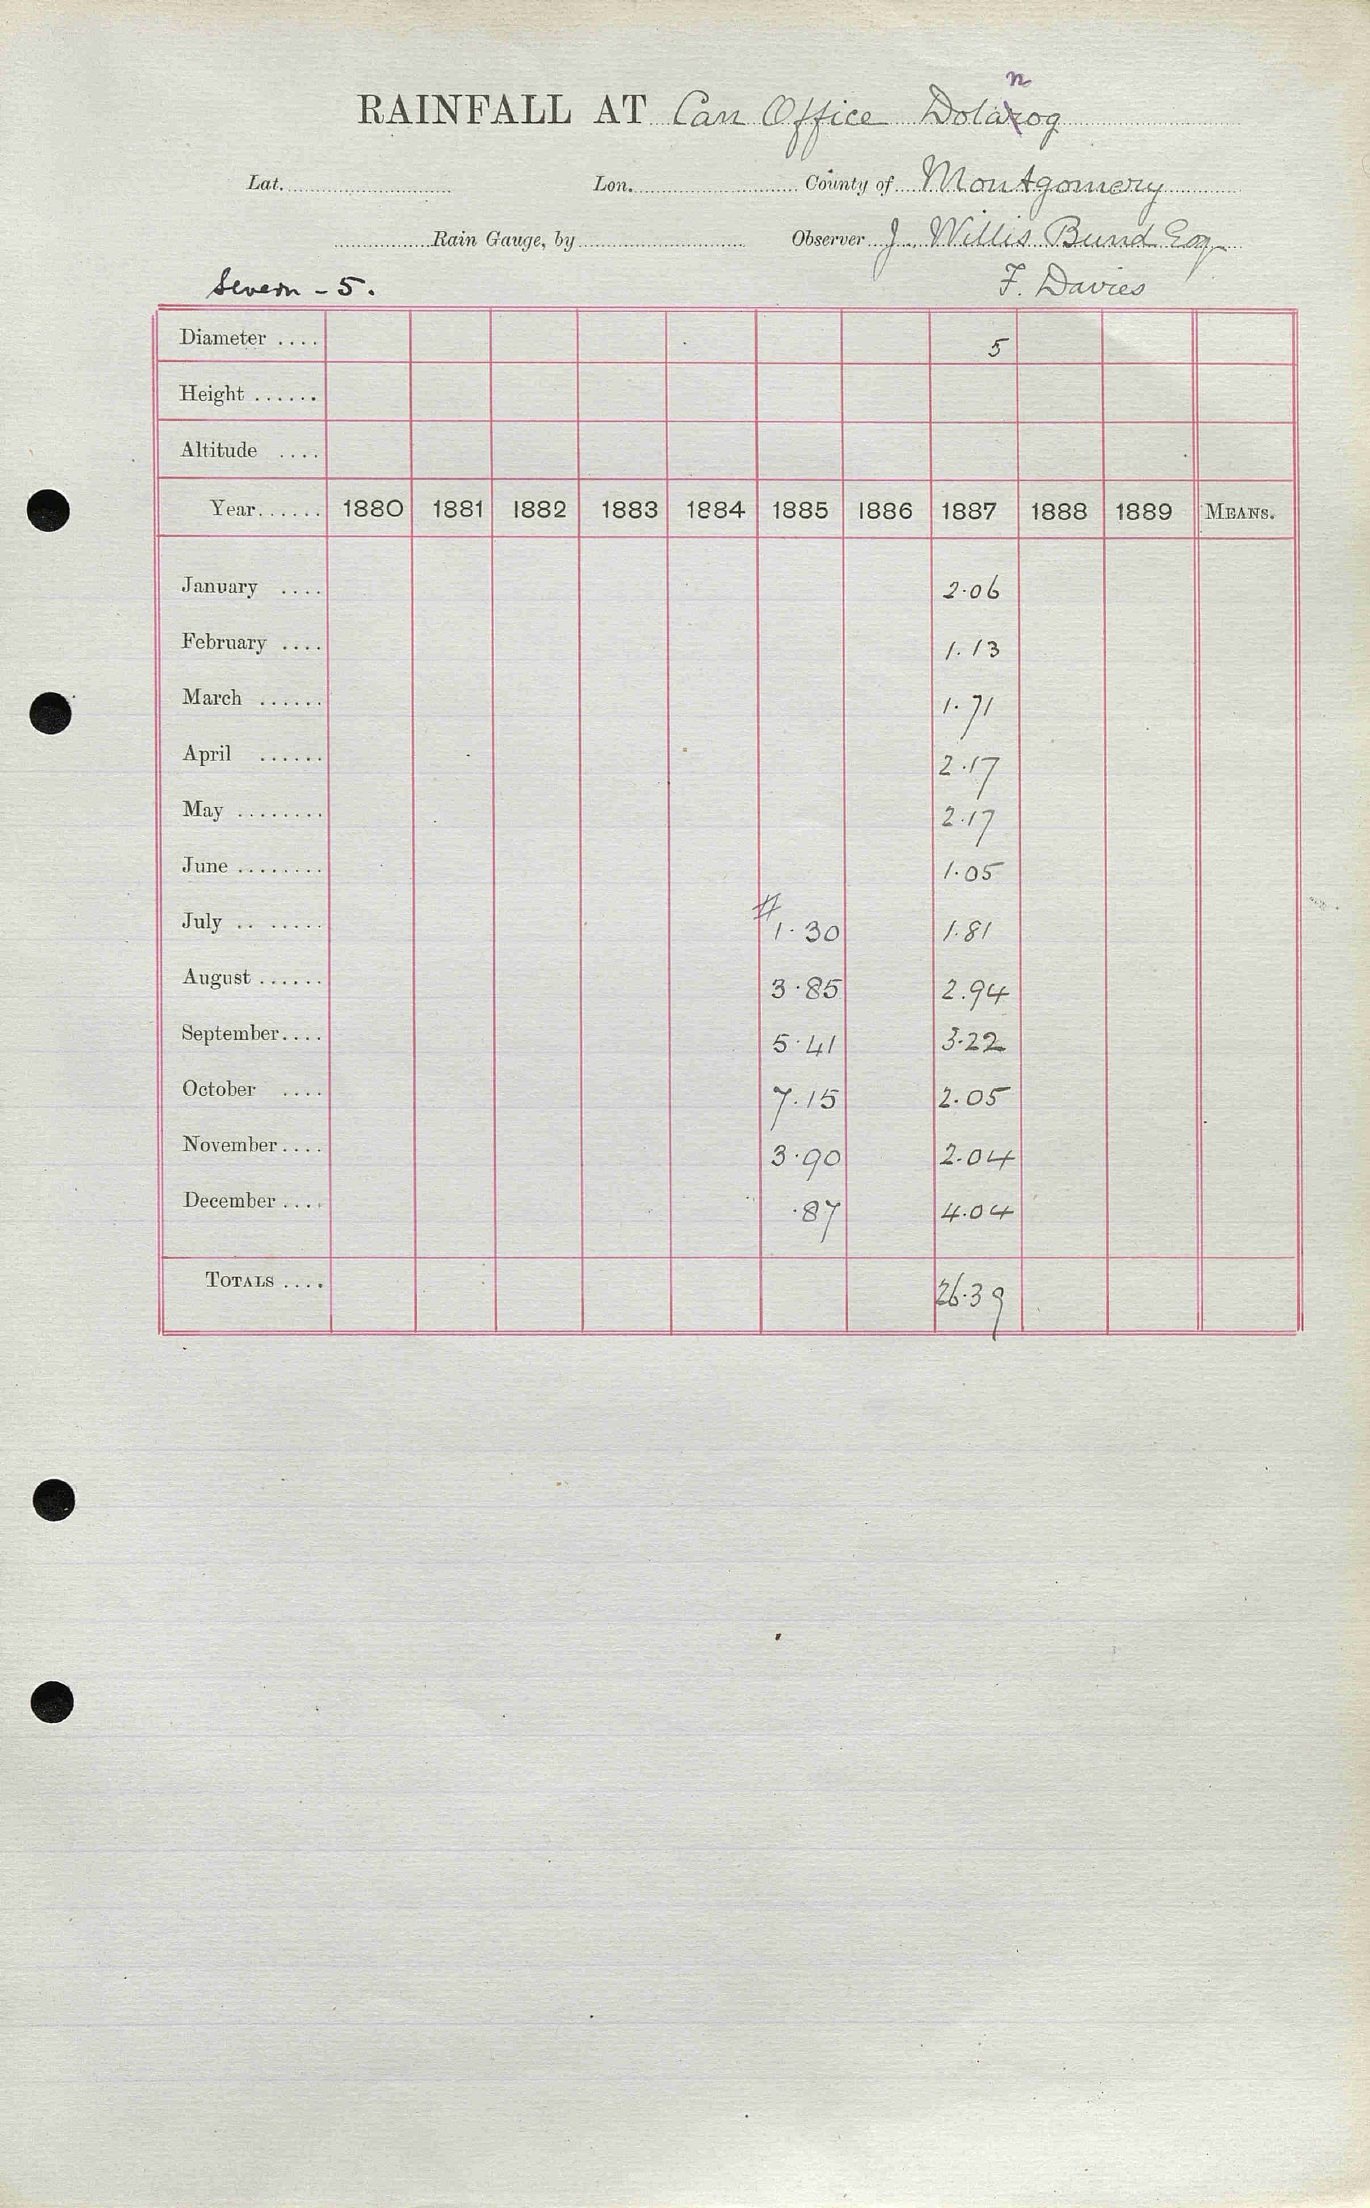 RAINFALL AT Can Office Dolanog
Lat. Lon. County of Montgomery
Rain Gauge, by Observer J. Willis Bund Esq
Severn - 5. F. Davies
Diameter .... 5
Height ......
Altitude ....
Year...... 1880 1881 1882 1883 1884 1885 1886 1887 1888 1889 MEANS.
January .... 2.06
February .... 1.13
March ...... 1.71
April ...... 2.17
May ........ 2.17
June ........ 1.05
July .. ..... # 1.30 1.81
August ...... 3.85 2.94
September.... 5.41 3.22
October .... 7.15 2.05
November.... 3.90 2.04
December .... .87 4.04
TOTALS .... 26.39